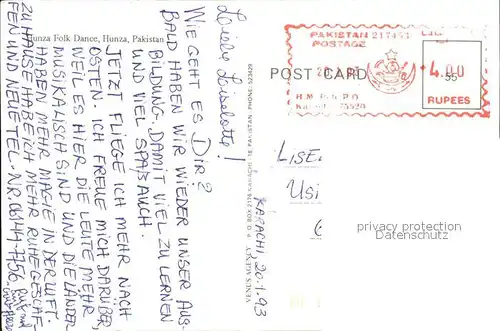 Hunza Folk Dance, Hunza, Pakistan
Liebe Liselotte!
WIE GEHT ES DIR?
BALD HABEN WIR WIEDER UNSER AUS-
BILDUNG. DAMIT VIEL ZU LERNEN
UND VIEL SPAß AUCH.
JETZT FLIEGE ICH MEHR NACH
OSTEN. ICH FREUE MICH DARÜBER,
WEIL ES HIER DIE LEUTE MEHR
MUSIKALISCH SIND UND DIE LÄNDER
HABEN MEHR MAGIE IN DER LUFT.
ZU HAUSE HABE ICH MEHR RUHE GESCHAF-
FEN UND NEUE TEL.-NR. 06144-7156.
PHONE: 523429
P.O. BOX 2116 KARACHI-18, PAKISTAN
KARACHI, 20.1.93
POST CARD
PAKISTAN 217451
POSTAGE
4.00
RUPEES
LISE
USI
privacy protection
watermark
privacy protection
watermark